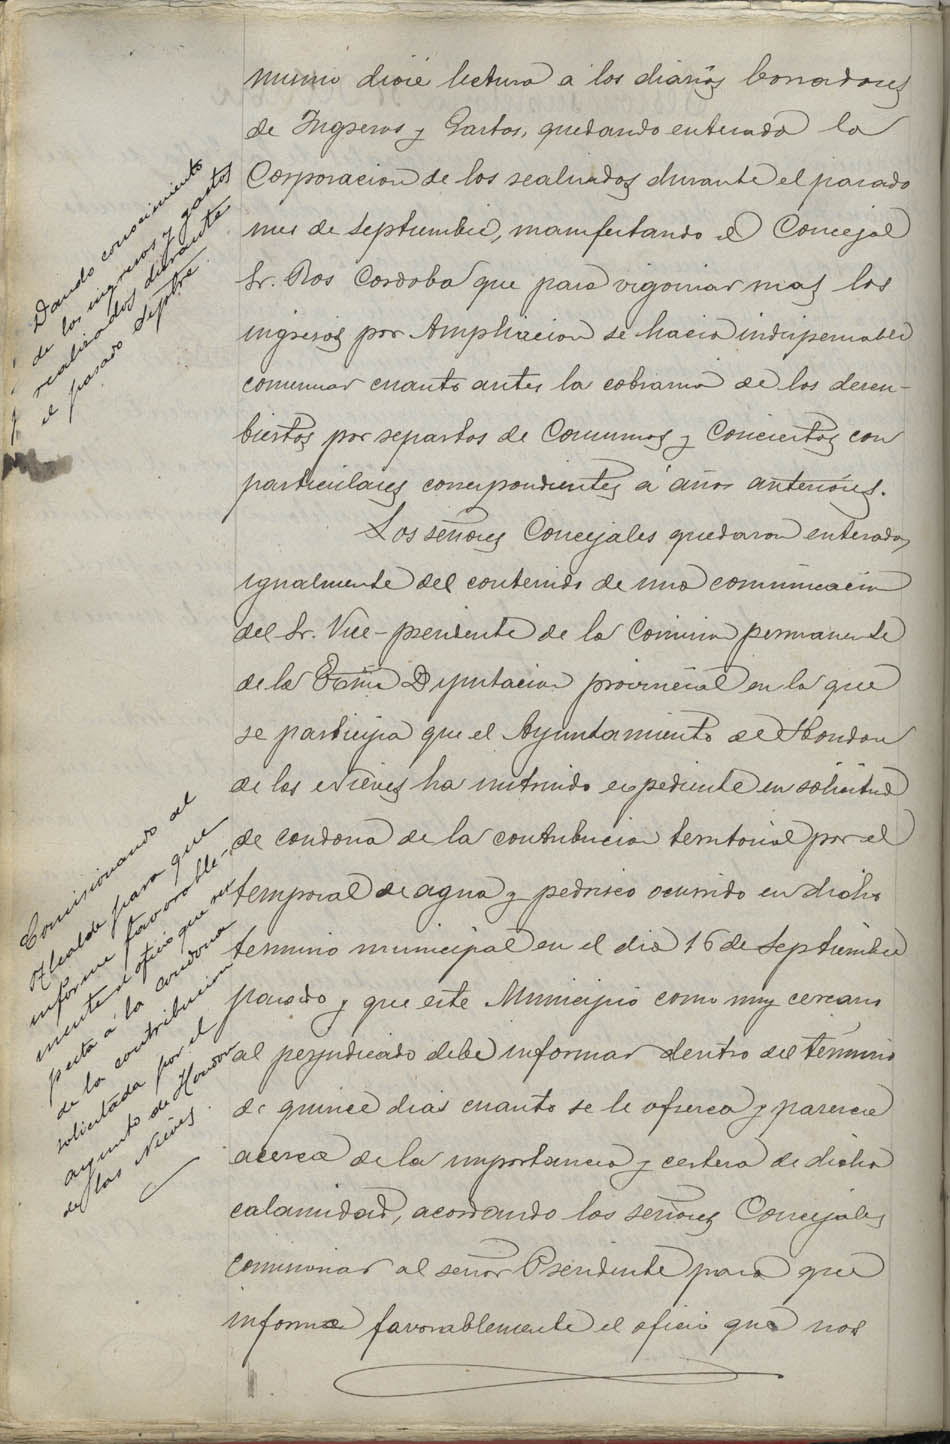 mismo dióse lectura á los diarios borradores
de Ingresos y Gastos, quedando enterada la
Corporacion de los realizados durante el pasado
mes de Septiembre, manifestando el Concejal
Sr. Ros Cordoba que para vigorizar mas los
ingresos por Ampliacion se hacia indispensable
comenzar cuanto antes la cobranza de los descu-
biertos por repartos de Consumos y Conciertos con
particulares correspondientes á años anteriores.
Los señores Concejales quedaron enterados
igualmente del contenido de una comunicacion
del Sr. Vice-presidente de la Comision permanente
de la Excma Diputacion provincial en la que
se participa que el Ayuntamiento de Hondon
de las Nieves ha instruido expediente en solicitud
de condona de la contribucion territorial por el
temporal de agua y pedrisco ocurrido en dicho
termino municipal en el dia 16 de Septiembre
pasado y que este Municipio como muy cercano
al perjudicado debe informar dentro del término
de quince dias cuanto se le ofrezca y parezca
acerca de la importancia y certeza de dicha
calamidad, acordando los señores Concejales
comisionar al señor Presidente para que
informe favorablemente el oficio que nos
Dando conocimiento
de los ingresos y gastos
realizados durante
el pasado Septbre
Comisionando al
Alcalde para que
informe favorable-
mente el oficio que res
pecta á la condona
de la contribucion
solicitada por el
ayunto de Hondon
de las Nieves.